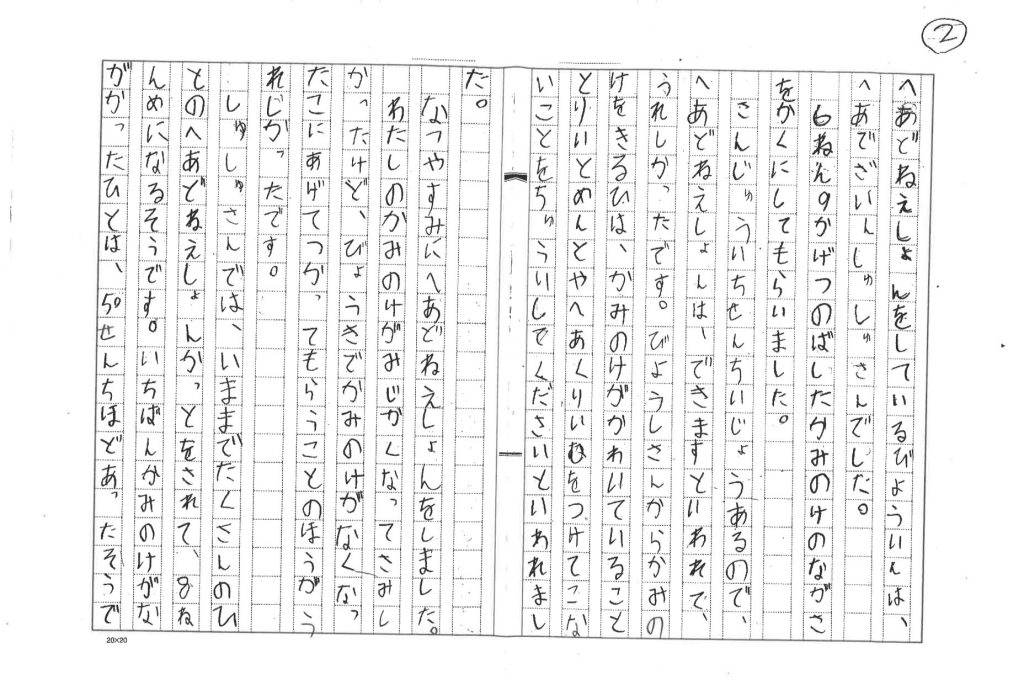 ②
へあどねえしょんをしているびよういんは、
へあでざいんしゅしゅさんでした。
6ねん9かげつのばしたかみのけのながさ
をかくにしてもらいました。
さんじゅういちせんちいじょうあるので、
へあどねえしょんは、できますといわれて、
うれしかったです。びようしさんからかみの
けをきるひは、かみのけががわいていること
とりいとめんとやへあくりいむをつけてこな
いことをちゅういしでくださいといわれまし
た。
なつやすみにへあどねえしょんをしました。
わたしのかみのけがみじかくなってさみし
かったけど、びょうきでかみのけがなくなっ
たこにあげてつかってもらうことのほうがう
れしかったです。
しゅしゅさんでは、いままでたくさんのひ
とのへあどねえしょんかっとをされて、8ね
んめになるそうです。いちばんかみのけがな
がかったひとは、50せんちほどあったそうで
20×20